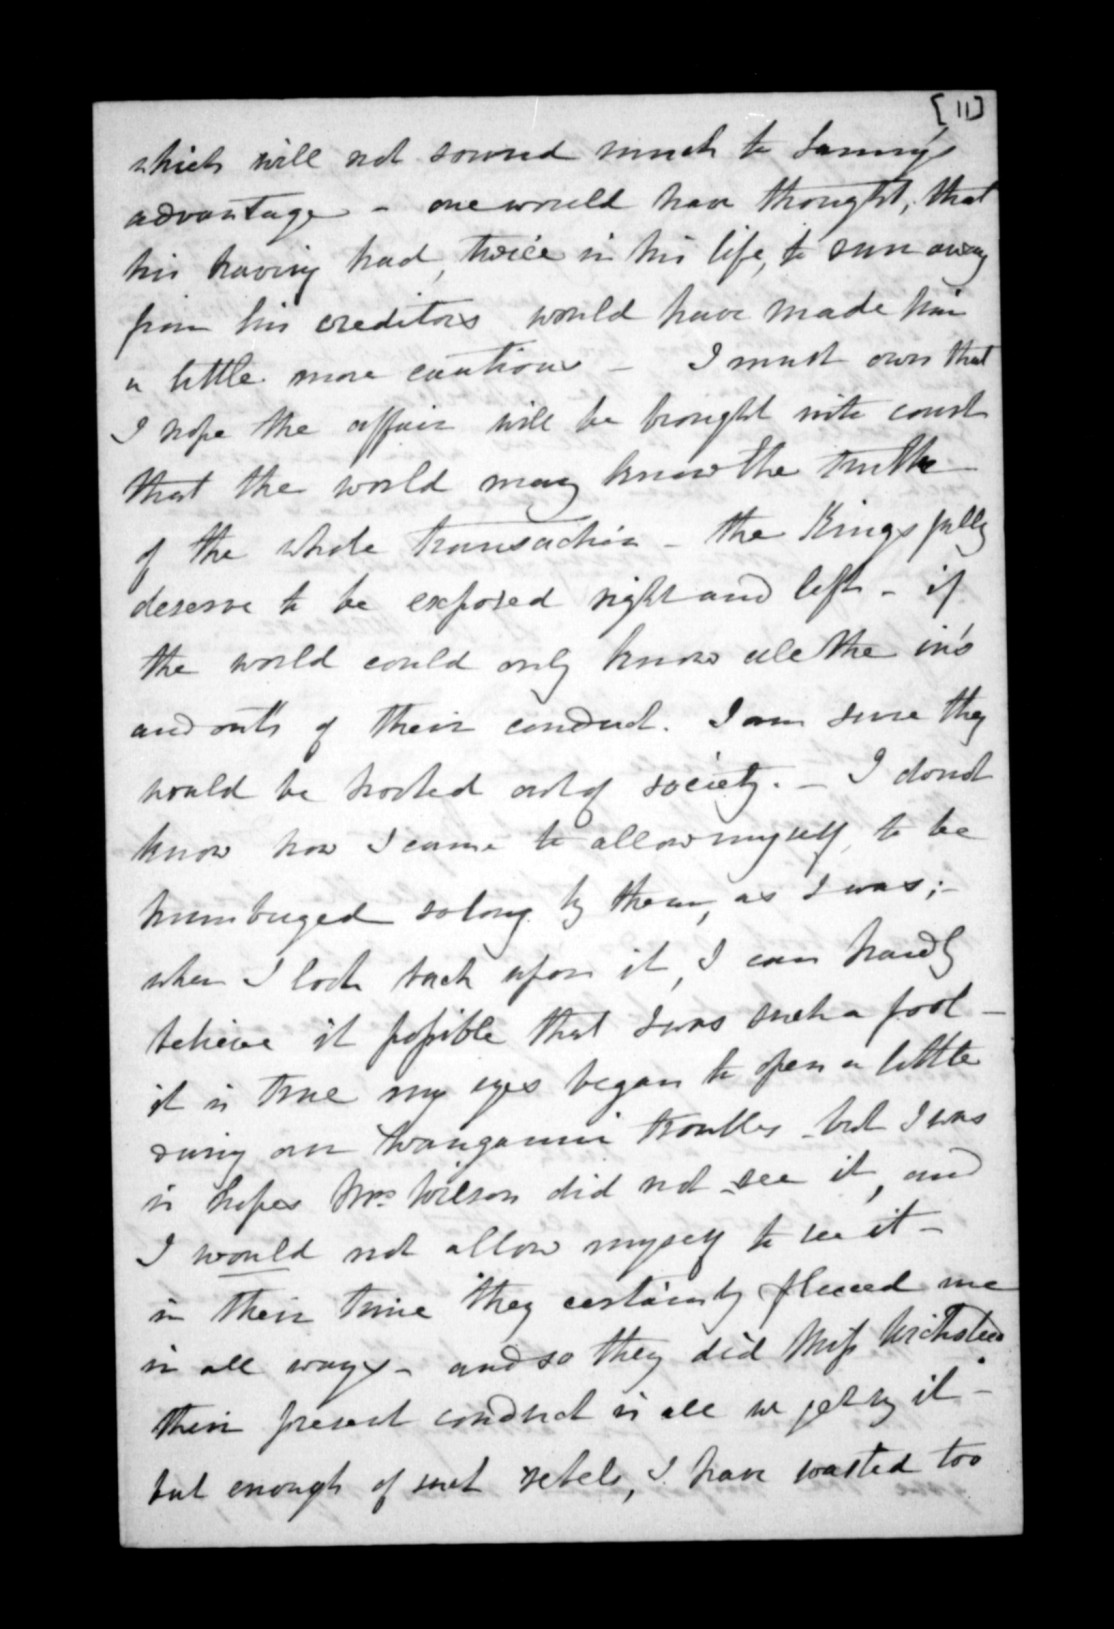 [11]
which will not sound much to Sammy's
advantage - one would have thought, that
his having had, twice in his life, to run away
from his creditors would have made him
a little more cautious - I must own that
I hope the affair will be brought into court
that the world may know the truth
of the whole transaction - the Kings fully
deserve to be exposed right and left - if
the world could only know all the in's
and out's of their conduct. I am sure they
would be hooted out of society. - I donot
know how I came to allow myself, to be
humbuged so long by them, as I was; -
when I look back upon it, I can hardly
believe it possible that I was such a fool -
it is true my eyes began to open a little
during our Wanganui troubles - but I was
in hopes Mrs. Wilson did not see it, and
I would not allow myself to see it -
in their time they certainly fleeced me
in all ways - and so they did Miss Wicksteed
their present conduct is all we get by it -
but enough of such rebels, I have wasted too